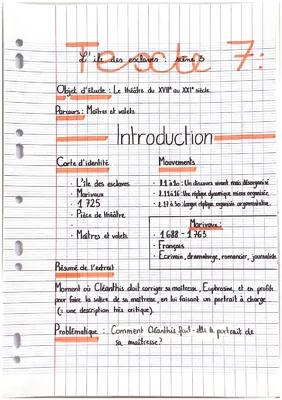 Texte 7:
L'île des esclaves : scène 3
Objet d'étude : Le théâtre du XVIIᵉ au XXIᵉ siècle.
Parcours : Maîtres et valets
Introduction
Carte d'identité
· L'île des esclaves
· Marivaux
· 1725
· Pièce de théâtre
· Maîtres et valets
Mouvements
· l.1 à 10 : Un discours vivant mais désorganisé
· l.11 à 16 : Une réplique dynamique mieux organisée.
· l.17 à 30 : longue réplique, organisée, argumentative.
Marivaux :
- 1688 - 1763
- Français
- Ecrivain, dramaturge, romancier, journaliste
Résumé de l'extrait
Moment où Cléanthis doit corriger sa maîtresse, Euphrosine, et en profite
pour faire la satire de sa maîtresse, en lui faisant un portrait à charge.
(= une description très critique).
Problématique : Comment Cléanthis fait-elle le portrait de
sa maîtresse?